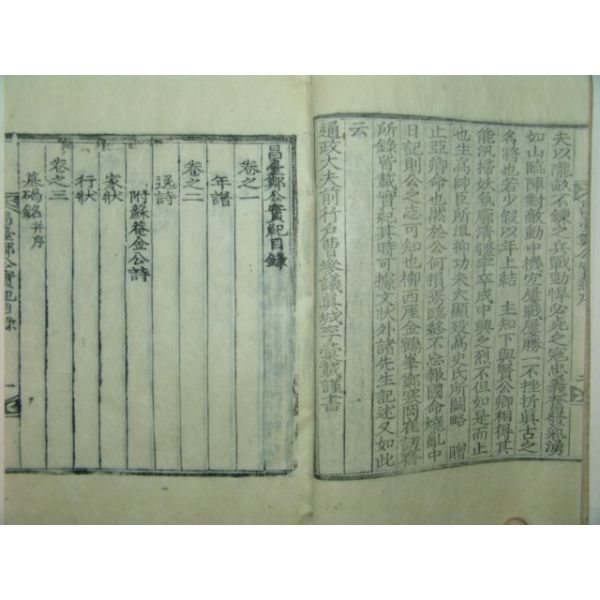 夫以隴畝不鍊之兵戰勁悍必死之寇忠義奮發氣湧
如山臨陣對敵動中機宜屢戰屢勝一不挫折眞古之
名將也若少假以年上結 主知下與賢公卿相得其
能汎掃妖氛廓清疆宇卒成中興之烈不但如是而止
也生爲帥所沮抑功未大顯歿爲史氏所闕略 贈
止亞卿命也然於公何損焉臨終不忘報國命亂中
日記則公之志可知也柳西厓金鶴峯鄭寒岡崔訒齋
所錄皆載實紀其時可據文狀外諸先生記述又如此
云
通政大夫前行戶曹參議眞城李彙載謹書
昌臺鄭公實紀目錄
卷之一
年譜
卷之二
逸詩
附蘇菴金公詩
家狀
行狀
卷之三
墓碣銘幷序
昌臺鄭公實紀目錄 一